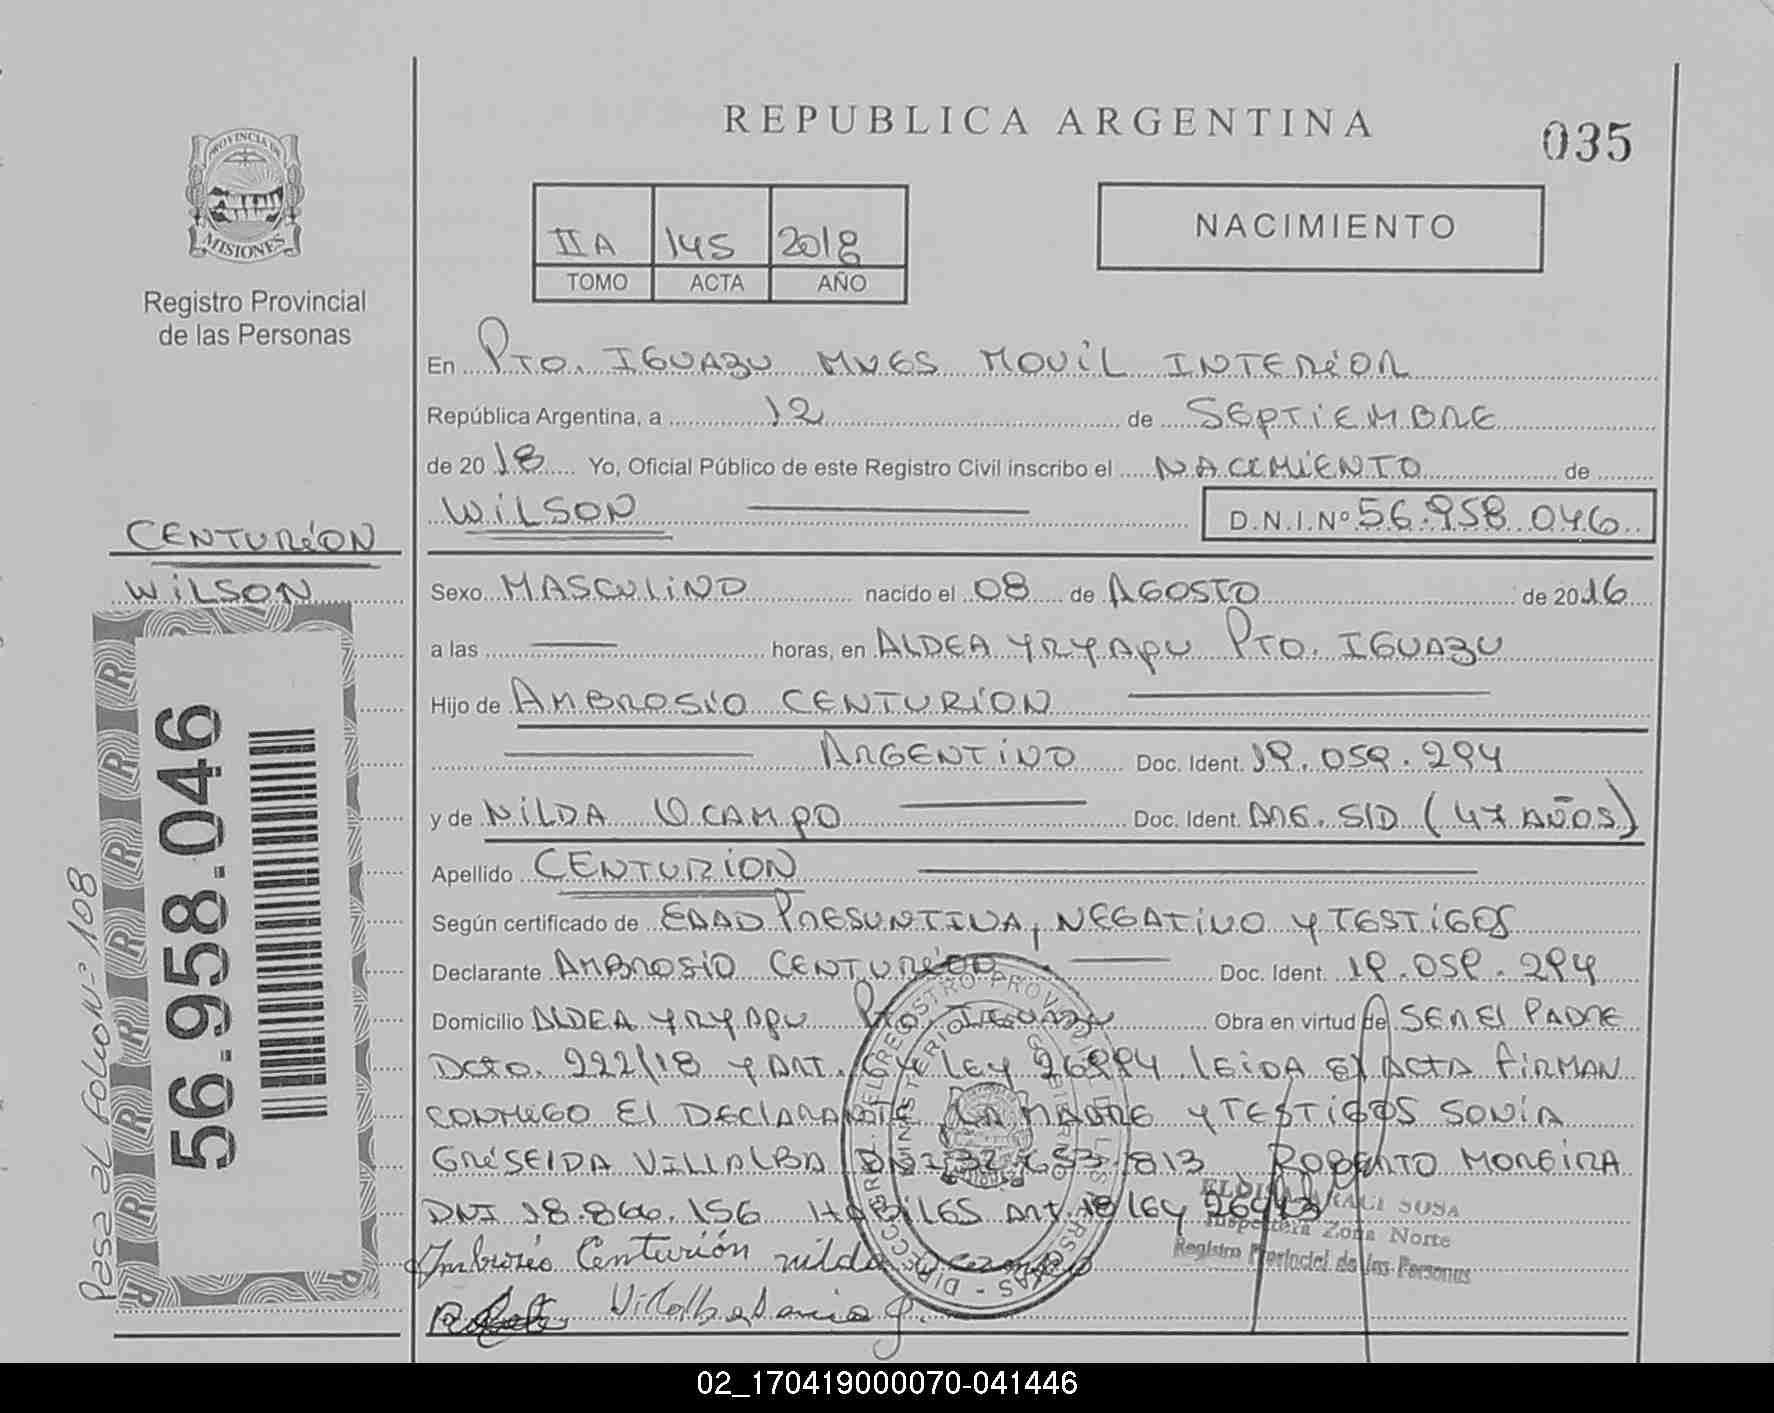 REPUBLICA ARGENTINA
035
PROVINCIA DE
MISIONES
Registro Provincial
de las Personas
IIA 145 2018
TOMO ACTA AÑO
NACIMIENTO
En PTO. IGUAZU MNES MOVIL INTERIOR
República Argentina, a 12 de SEPTIEMBRE
de 2018 Yo, Oficial Público de este Registro Civil inscribo el NACIMIENTO de
WILSON D.N.I.Nº 56.958.046
CENTURION
WILSON
Sexo MASCULINO nacido el 08 de AGOSTO de 2016
a las horas, en ALDEA YRYAPU PTO. IGUAZU
Hijo de AMBROSIO CENTURION
ARGENTINO Doc. Ident. 19.059.294
y de NILDA OCAMPO Doc. Ident. ARG. S/D (47 AÑOS)
Apellido CENTURION
Según certificado de EDAD PRESUNTIVA, NEGATIVO Y TESTIGOS
Declarante AMBROSIO CENTURION Doc. Ident. 19.059.294
Domicilio ALDEA YRYAPU PTO. IGUAZU Obra en virtud de SER EL PADRE
DCTO. 222/18 Y ART. 64 LEY 26994 LEIDA EL ACTA FIRMAN
CONMIGO EL DECLARANTE LA MADRE Y TESTIGOS SONIA
GRISELDA VILLALBA DNI 32.653.813 ROBERTO MOREIRA
DNI 18.866.156 HABILES ART. 18 LEY 26413
Ambrosio Centurión nilda Ocampo
Villalba Sonia G.
56.958.046
Pasa al folio Nº 108
SOSA
Inspectora Zona Norte
Registro Provincial de las Personas
02_170419000070-041446